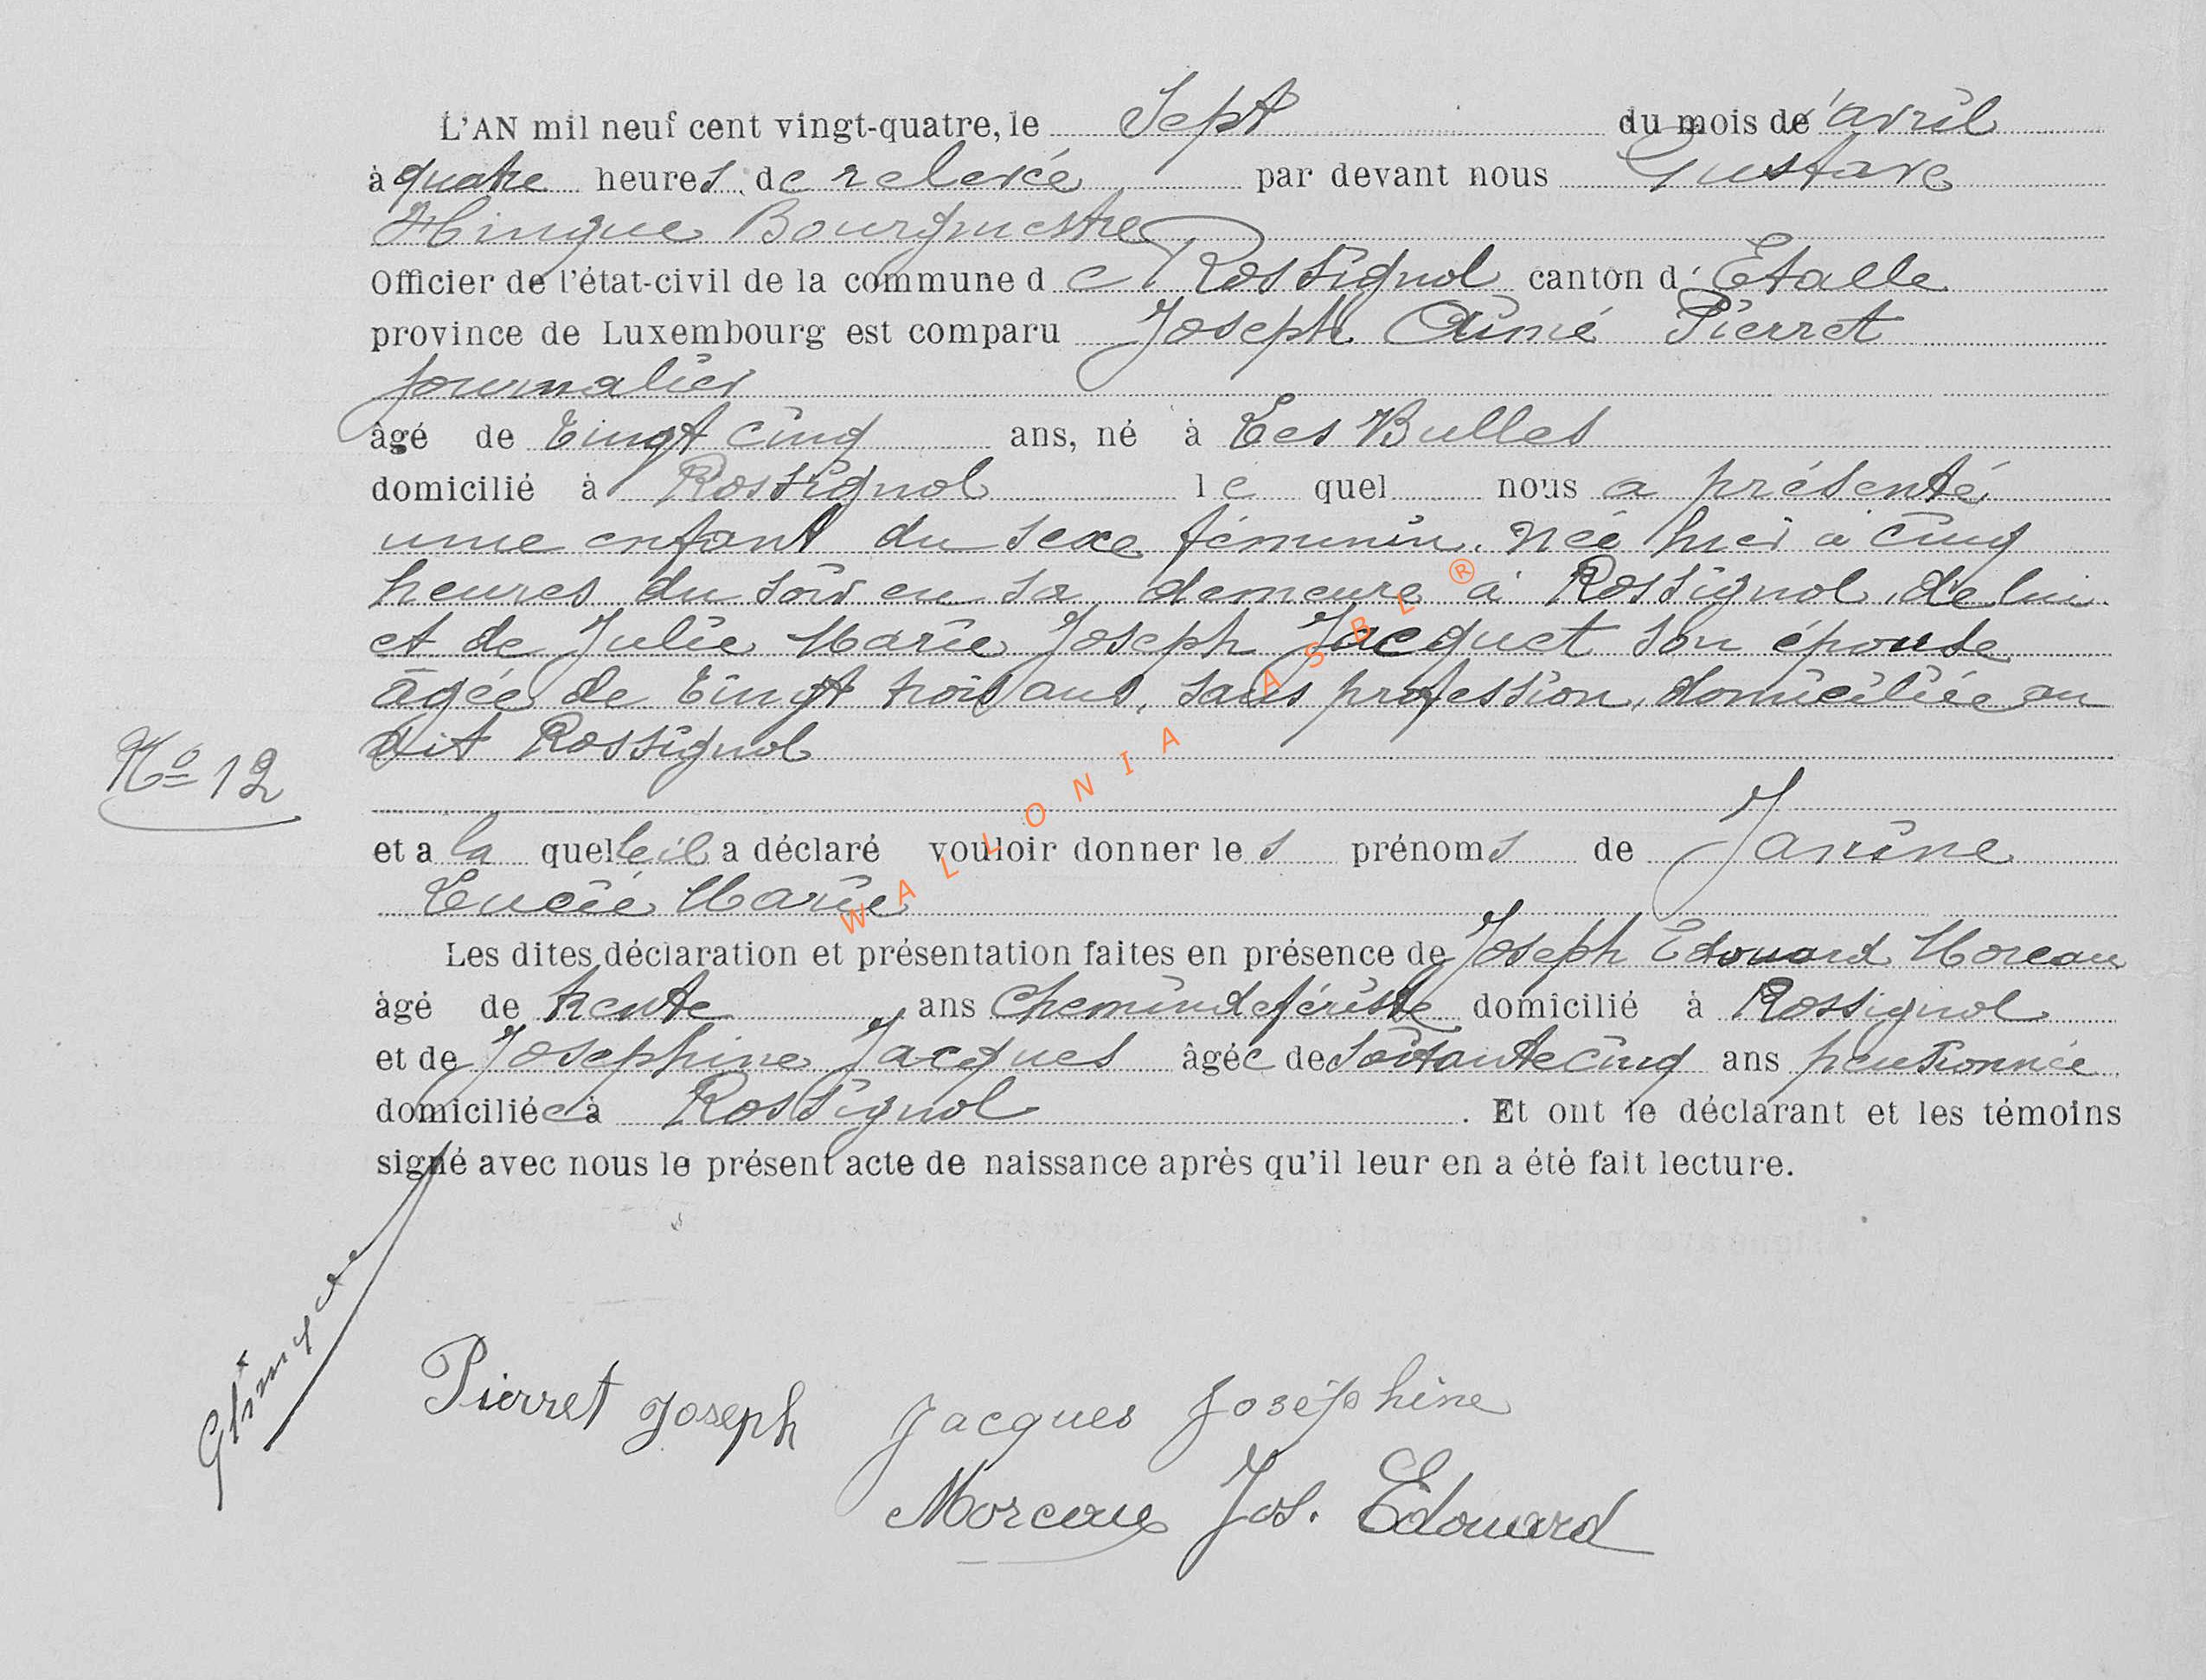 L'AN mil neuf cent vingt-quatre, le Sept du mois de avril
à quatre heures de relevée par devant nous Gustave
Hinque Bourgmestre
Officier de l'état-civil de la commune de Rossignol canton d'Etalle
province de Luxembourg est comparu Joseph Aimé Pierret
journalier
âgé de Vingt cinq ans, né à Les Bulles
domicilié à Rossignol lequel nous a présenté
une enfant du sexe féminin. née hier à cinq
heures du soir en sa demeure à Rossignol, de lui
et de Julie Marie Joseph Jacquet son épouse
âgée de Vingt trois ans, sans profession, domiciliée au
dit Rossignol
No 12
et a la quelle il a déclaré vouloir donner les prénoms de Janine
Lucie Marie
Les dites déclaration et présentation faites en présence de Joseph Edouard Moreau
âgé de trente ans chemindefériste domicilié à Rossignol
et de Josephine Jacques âgée de Soixante cinq ans pensionnée
domiciliée à Rossignol. Et ont le déclarant et les témoins
signé avec nous le présent acte de naissance après qu'il leur en a été fait lecture.
GHinque
Pierret Joseph Jacques Joséphine
Moreau Jos. Edouard
WALLONIA ASBL ®